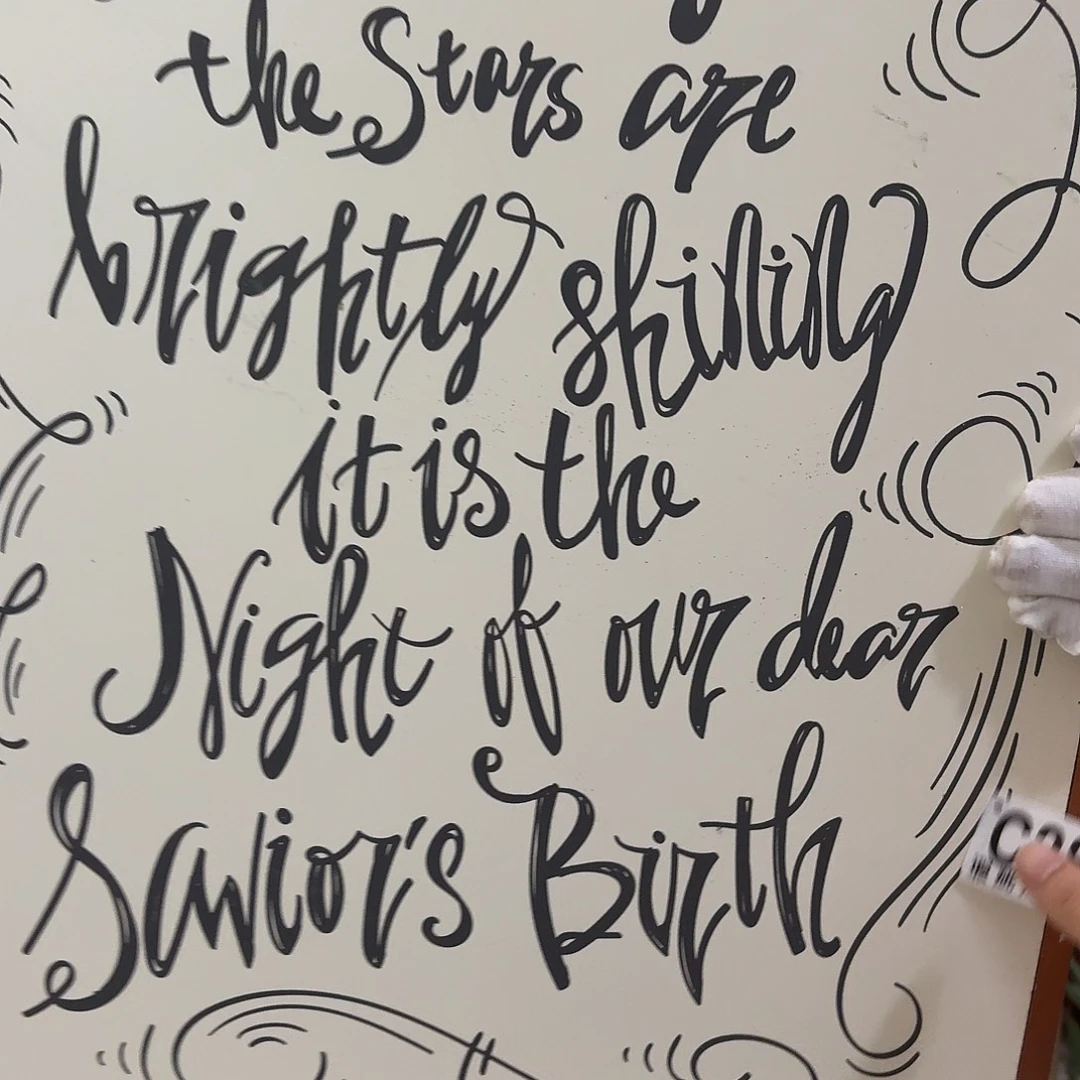 the Stars are
brightly shining
it is the
Night of our dear
Savior's Birth